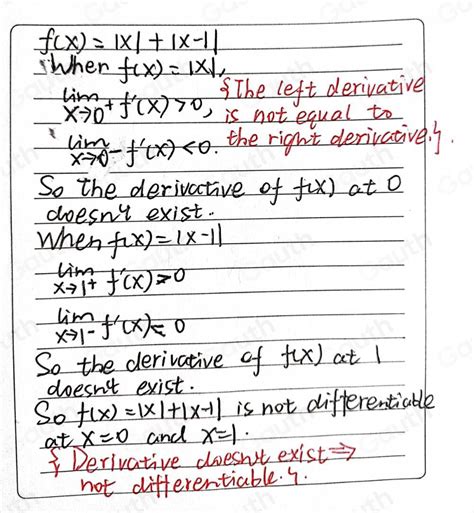 f(x) = |x| + |x-1|
When f(x) = |x|,
{The left derivative
lim x→0+ f'(x) > 0,
is not equal to
the right derivative.}.
lim x→0- f'(x) < 0.
So the derivative of f(x) at 0
doesn't exist.
When f(x) = |x-1|
lim x→1+ f'(x) > 0
lim x→1- f'(x) < 0
So the derivative of f(x) at 1
doesn't exist.
So f(x) = |x| + |x-1| is not differentiable
at x=0 and x=1.
{Derivative doesn't exist ⇒
not differentiable.}.